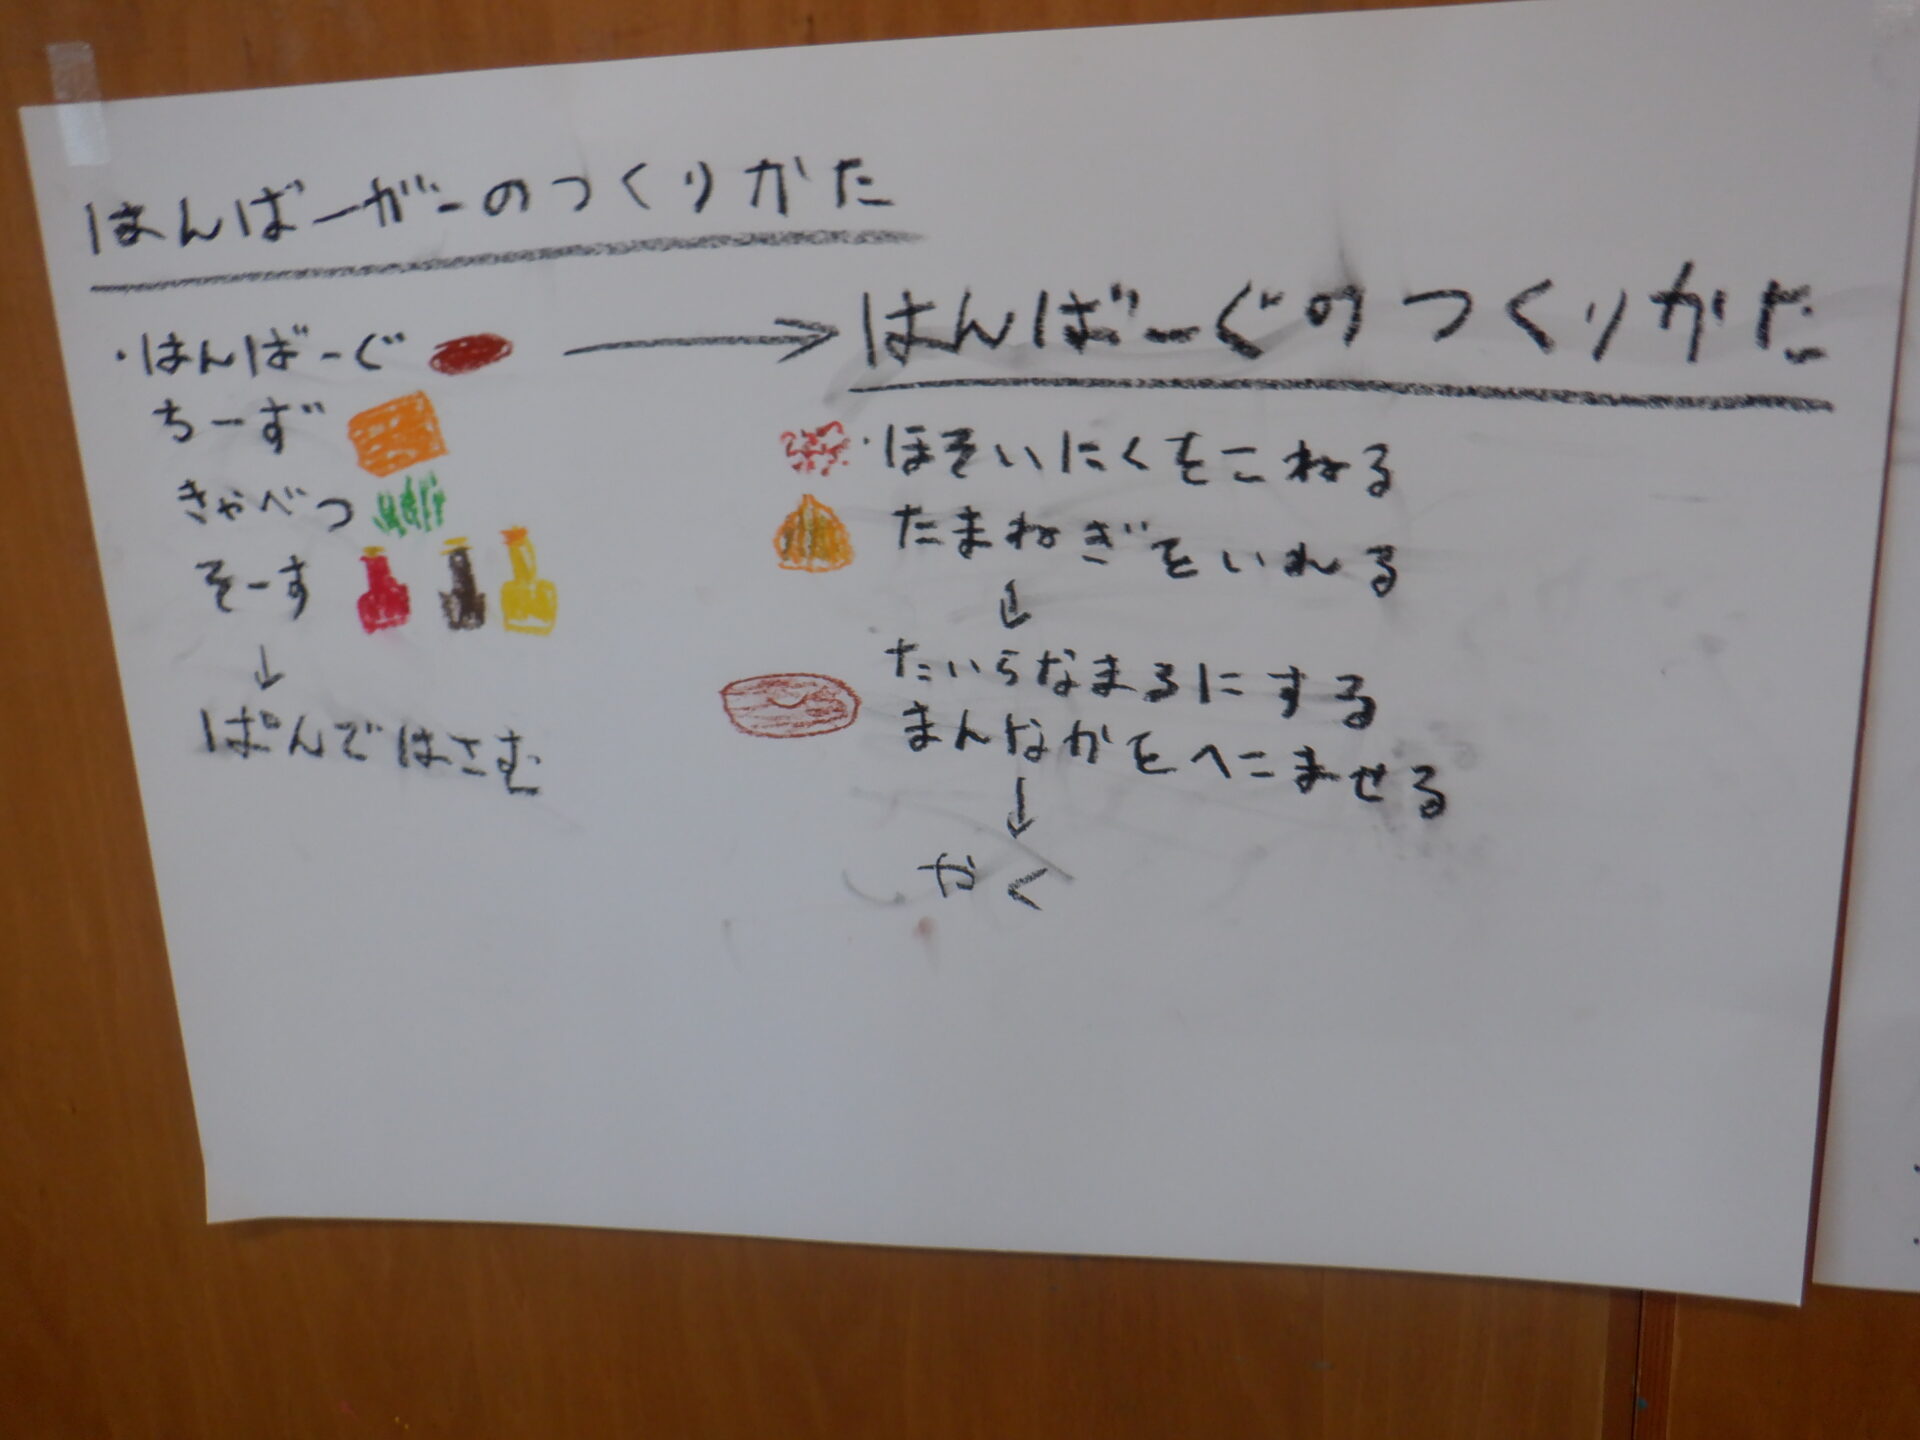 はんばーがーのつくりかた
・はんばーぐ
ちーず
きゃべつ
そーす
↓
ぱんではさむ
→はんばーぐのつくりかた
・ほそいにくをこねる
たまねぎをいれる
↓
たいらなまるにする
まんなかをへこませる
↓
やく